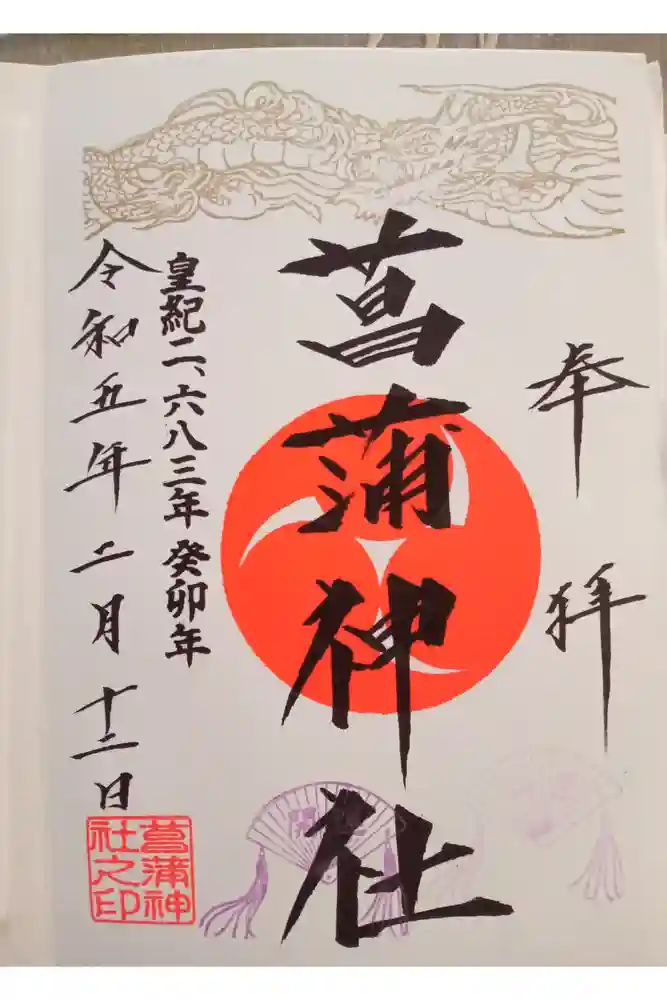 奉拝
菖蒲神社
皇紀二、六八三年 癸卯年
令和五年二月十二日
菖蒲神
社之印